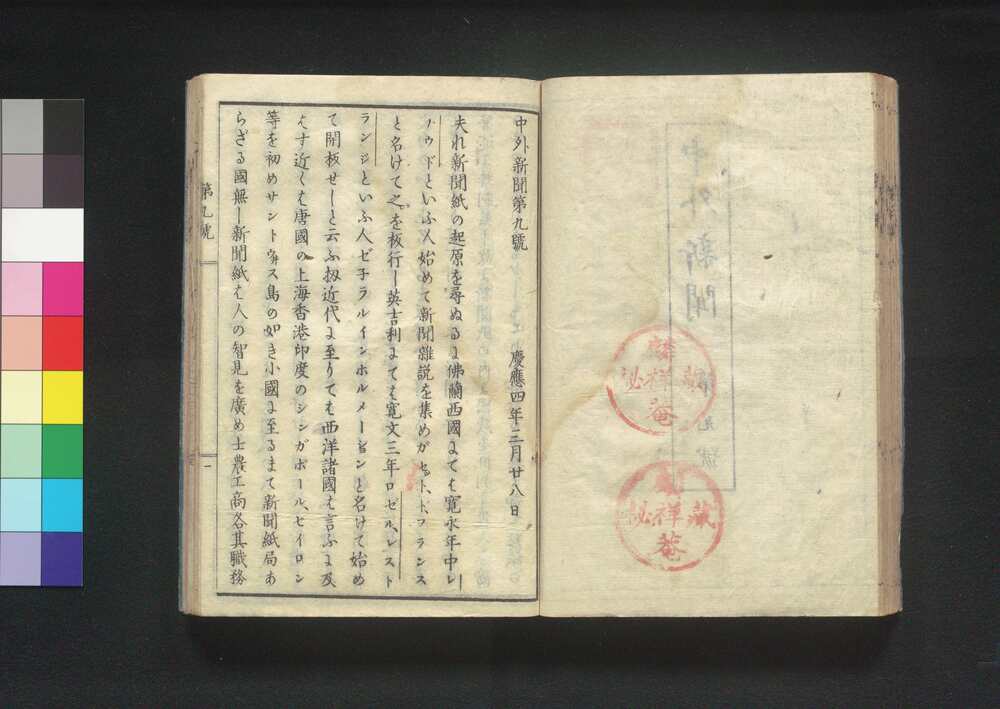 中外新聞
麟祥菴秘蔵
麟祥菴秘蔵
中外新聞第九號　慶應四年三月廿八日
夫れ新聞紙の起原を尋ぬるに佛蘭西國にては寛永年中レ
ノウドといふ人始めて新聞雜説を集めガセットドフランス
と名けて之を板行し英吉利にても寛文三年ロゼル、レスト
ランジといふ人ゼ子ラルインホルメーションと名けて始め
て開板せしと云ふ扨近代に至りては西洋諸國は言ふに及
はす近くは唐國の上海香港印度のシンガポール、セイロン
等を初めサントウィス島の如き小國に至るまて新聞紙局あ
らざる國無し新聞紙は人の智見を廣め士農工商各其職務
第九號
一